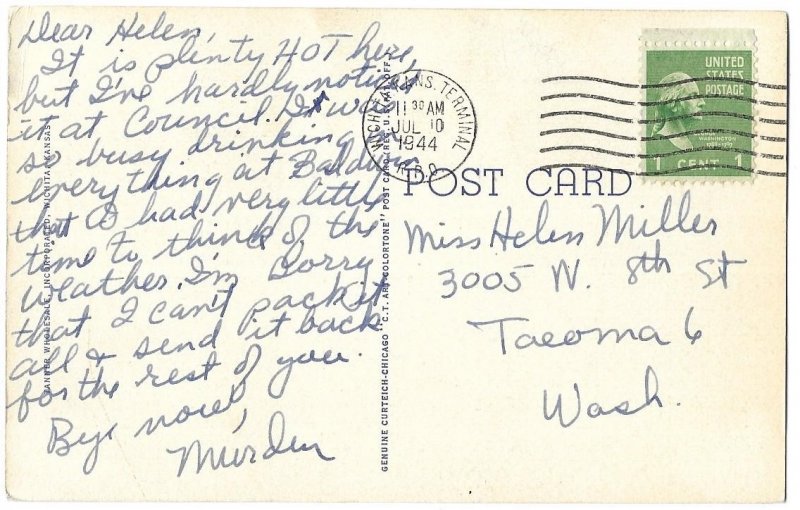 Dear Helen,
It is plenty HOT here,
but I've hardly noticed
it at Council. I was
so busy drinking
everything at Baldwin
that I had very little
time to think of the
weather. I'm sorry
that I can't pack it
all & send it back
for the rest of you.
Bye now,
BANNER WHOLESALE, INCORPORATED, WICHITA, KANSAS
GENUINE CURTEICH-CHICAGO "C.T. ART-COLORTONE" POST CARD (REG. U.S. PAT. OFF.)
WICHITA, KANS. TERMINAL
11 30 AM
JUL 10
1944
R.P.O.
UNITED
STATES
POSTAGE
WASHINGTON
1 CENT 1
POST CARD
Miss Helen Miller
3005 N. 8th St
Tacoma 6
Wash.